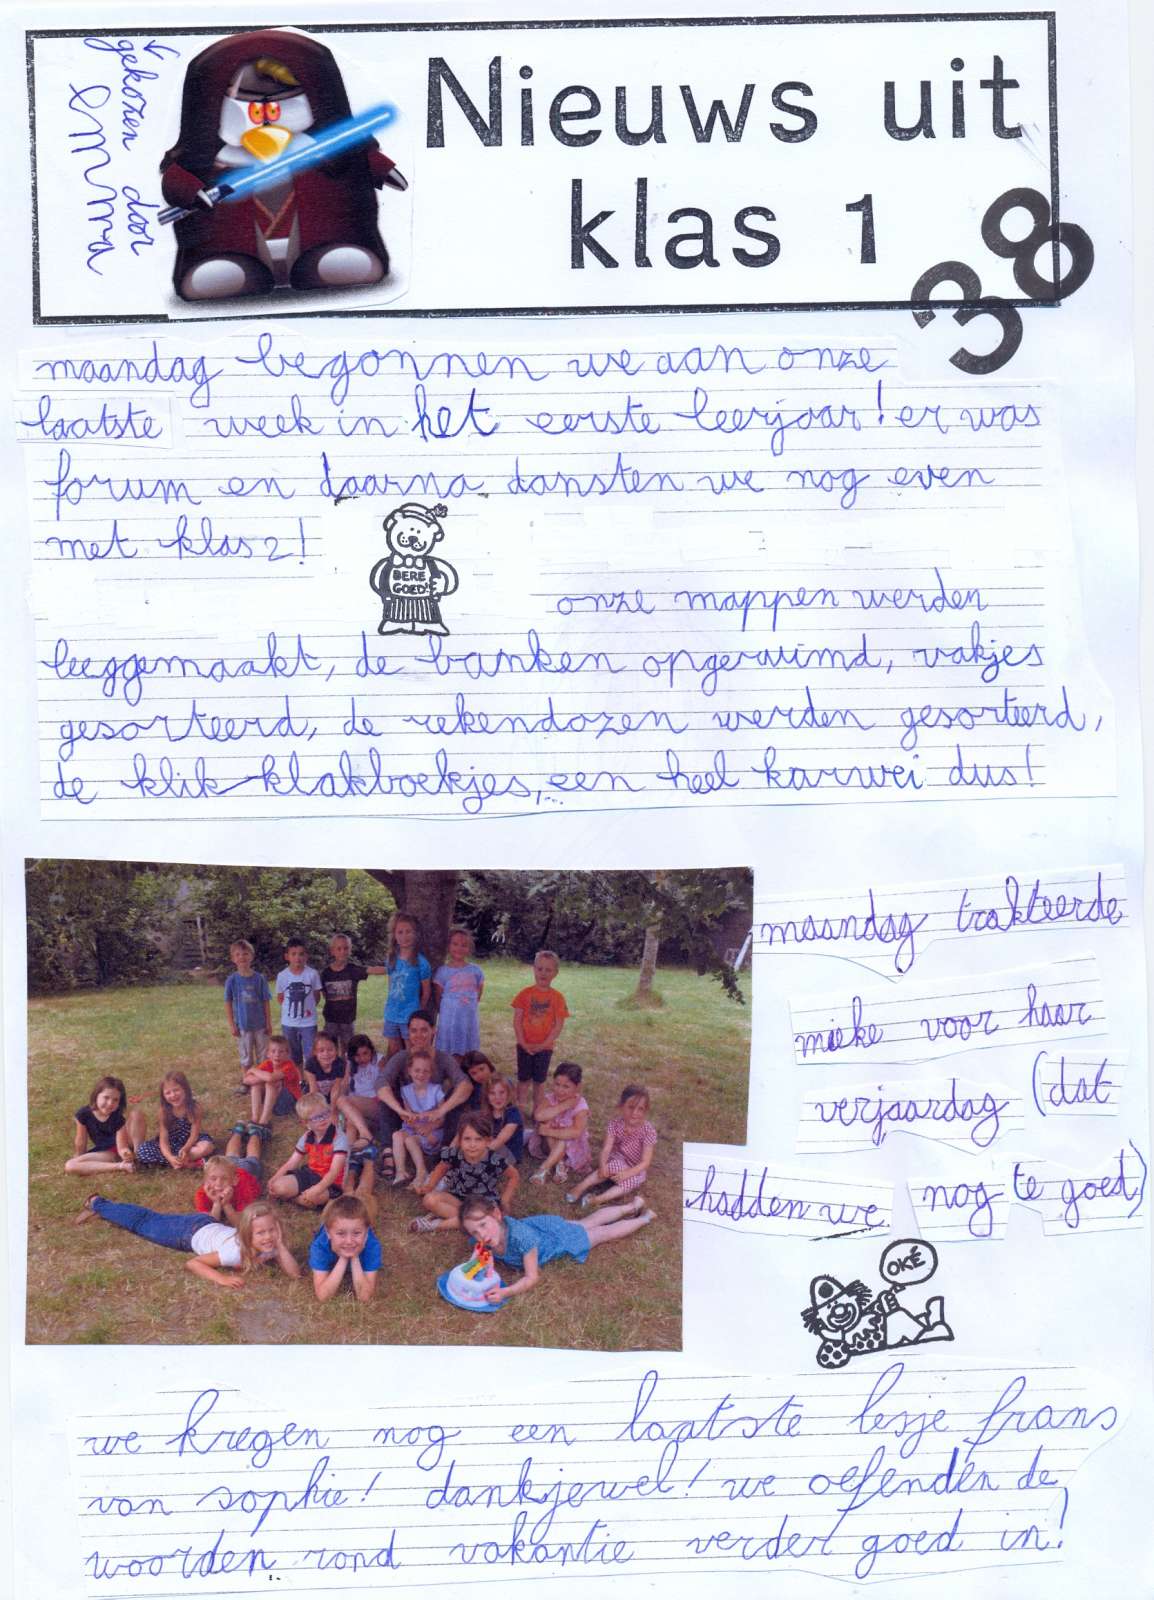 gekozen door
emma
Nieuws uit
klas 1
38
maandag begonnen we aan onze
laatste week in het eerste leerjaar! er was
forum en daarna dansten we nog even
met klas 2!
BERE
GOED!
onze mappen werden
leeggemaakt, de banken opgeruimd, vakjes
gesorteerd, de rekendozen werden gesorteerd,
de klik-klakboekjes,... een heel karwei dus!
maandag trakteerde
mieke voor haar
verjaardag (dat
hadden we nog te goed)
OKÉ
we kregen nog een laatste lesje frans
van sophie! dankjewel! we oefenden de
woorden rond vakantie verder goed in!